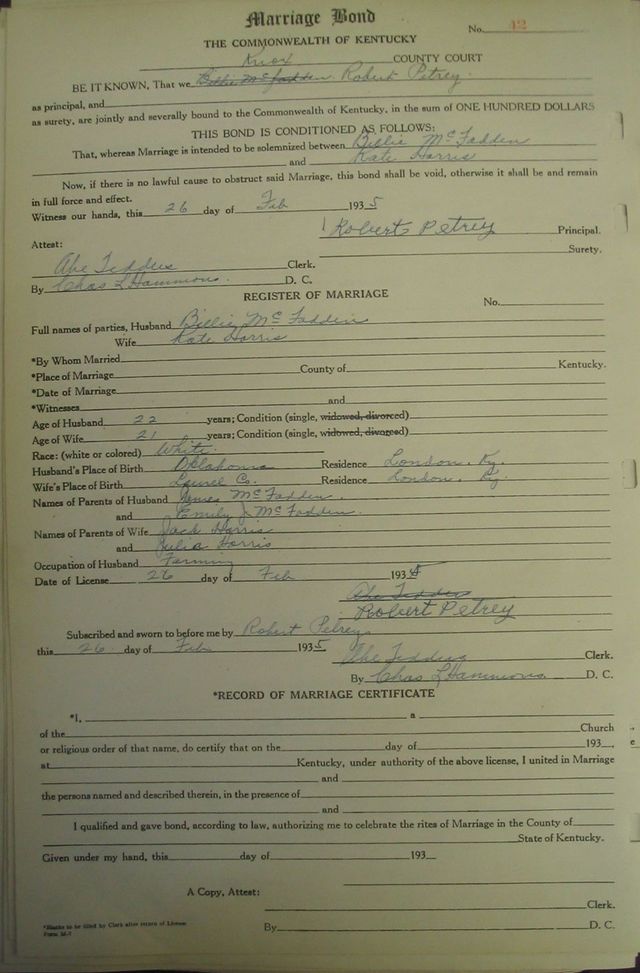 Marriage Bond
No. 12
THE COMMONWEALTH OF KENTUCKY
Knox COUNTY COURT
BE IT KNOWN, That we Billie McFadden Robert Petrey
as principal, and
as surety, are jointly and severally bound to the Commonwealth of Kentucky, in the sum of ONE HUNDRED DOLLARS
THIS BOND IS CONDITIONED AS FOLLOWS:
That, whereas Marriage is intended to be solemnized between Billie McFadden
and Kate Harris
Now, if there is no lawful cause to obstruct said Marriage, this bond shall be void, otherwise it shall be and remain
in full force and effect.
Witness our hands, this 26 day of Feb 1935
Robert Petrey Principal.
Attest:
Surety.
Abe Tedders Clerk.
By Chas L Hammons. D. C.
REGISTER OF MARRIAGE
No.
Full names of parties, Husband Billie McFadden
Wife Kate Harris
*By Whom Married
*Place of Marriage County of Kentucky.
*Date of Marriage
*Witnesses and
Age of Husband 22 years; Condition (single, widowed, divorced)
Age of Wife 21 years; Condition (single, widowed, divorced)
Race: (white or colored) White.
Husband's Place of Birth Oklahoma Residence London, Ky.
Wife's Place of Birth Laurel Co. Residence London, Ky.
Names of Parents of Husband James McFadden.
and Emily J. McFadden.
Names of Parents of Wife Jack Harris
and Julia Harris
Occupation of Husband Farming
Date of License 26 day of Feb 1935
Abe Tedders
Robert Petrey
Subscribed and sworn to before me by Robert Petrey
this 26 day of Feb 1935
Abe Tedders Clerk.
By Chas L Hammons D. C.
*RECORD OF MARRIAGE CERTIFICATE
*I, a
of the Church
or religious order of that name, do certify that on the day of 193 ,
at Kentucky, under authority of the above license, I united in Marriage
and
the persons named and described therein, in the presence of
and
I qualified and gave bond, according to law, authorizing me to celebrate the rites of Marriage in the County of
State of Kentucky.
Given under my hand, this day of 193
A Copy, Attest:
Clerk.
*Blanks to be filled by Clerk after return of License
Form M-7
By D. C.